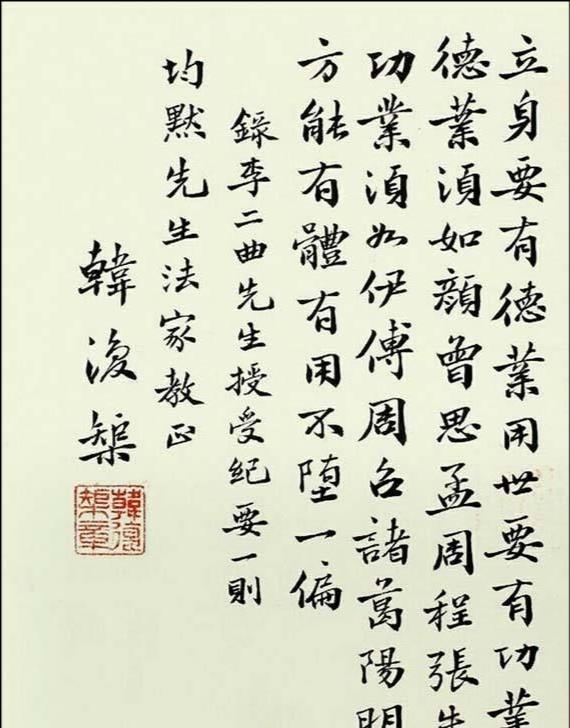 立身要有德業用世要有功業
德業須如顏曾思孟周程張
功業須如伊傅周召諸葛陽明
方能有體有用不墮一偏
錄李二曲先生授受紀要一則
均默先生法家教正
韓復榘
韓復榘章